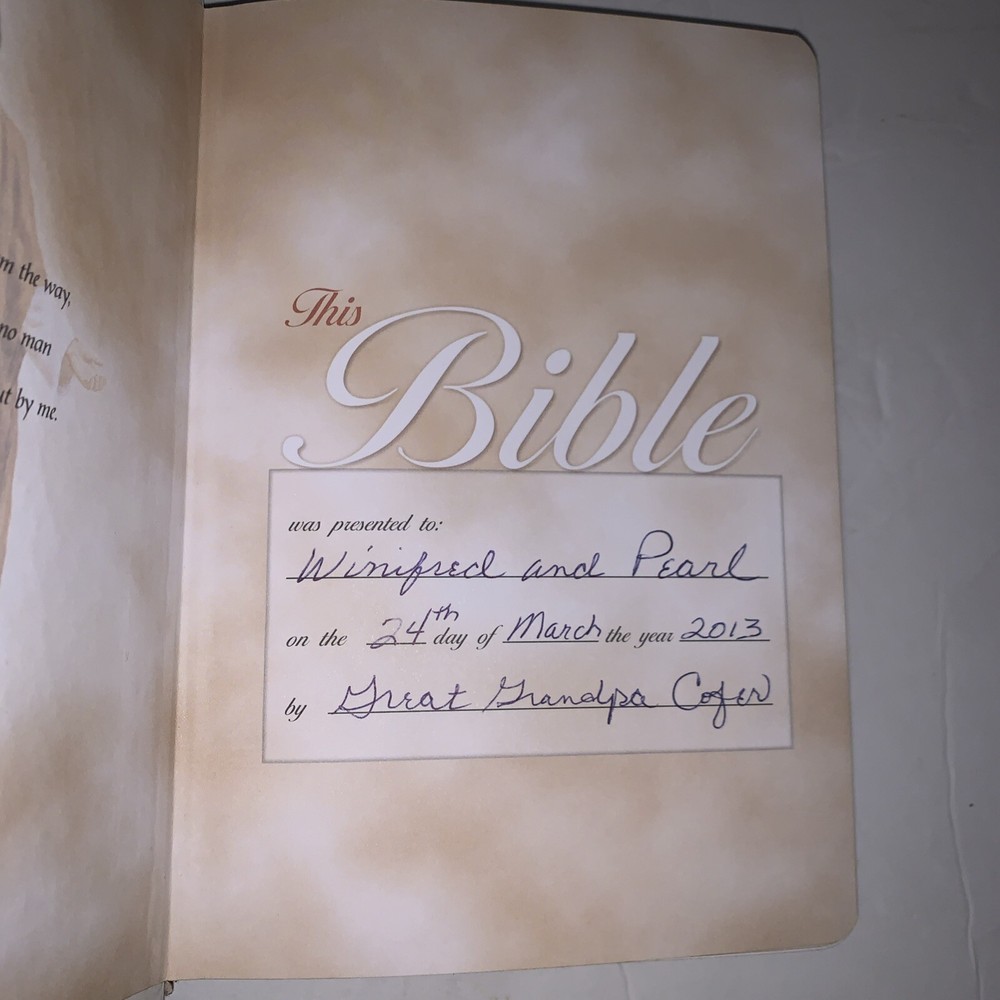 m the way,
no man
ut by me.
This
Bible
was presented to:
Winifred and Pearl
on the 24th day of March the year 2013
by Great Grandpa Cofer